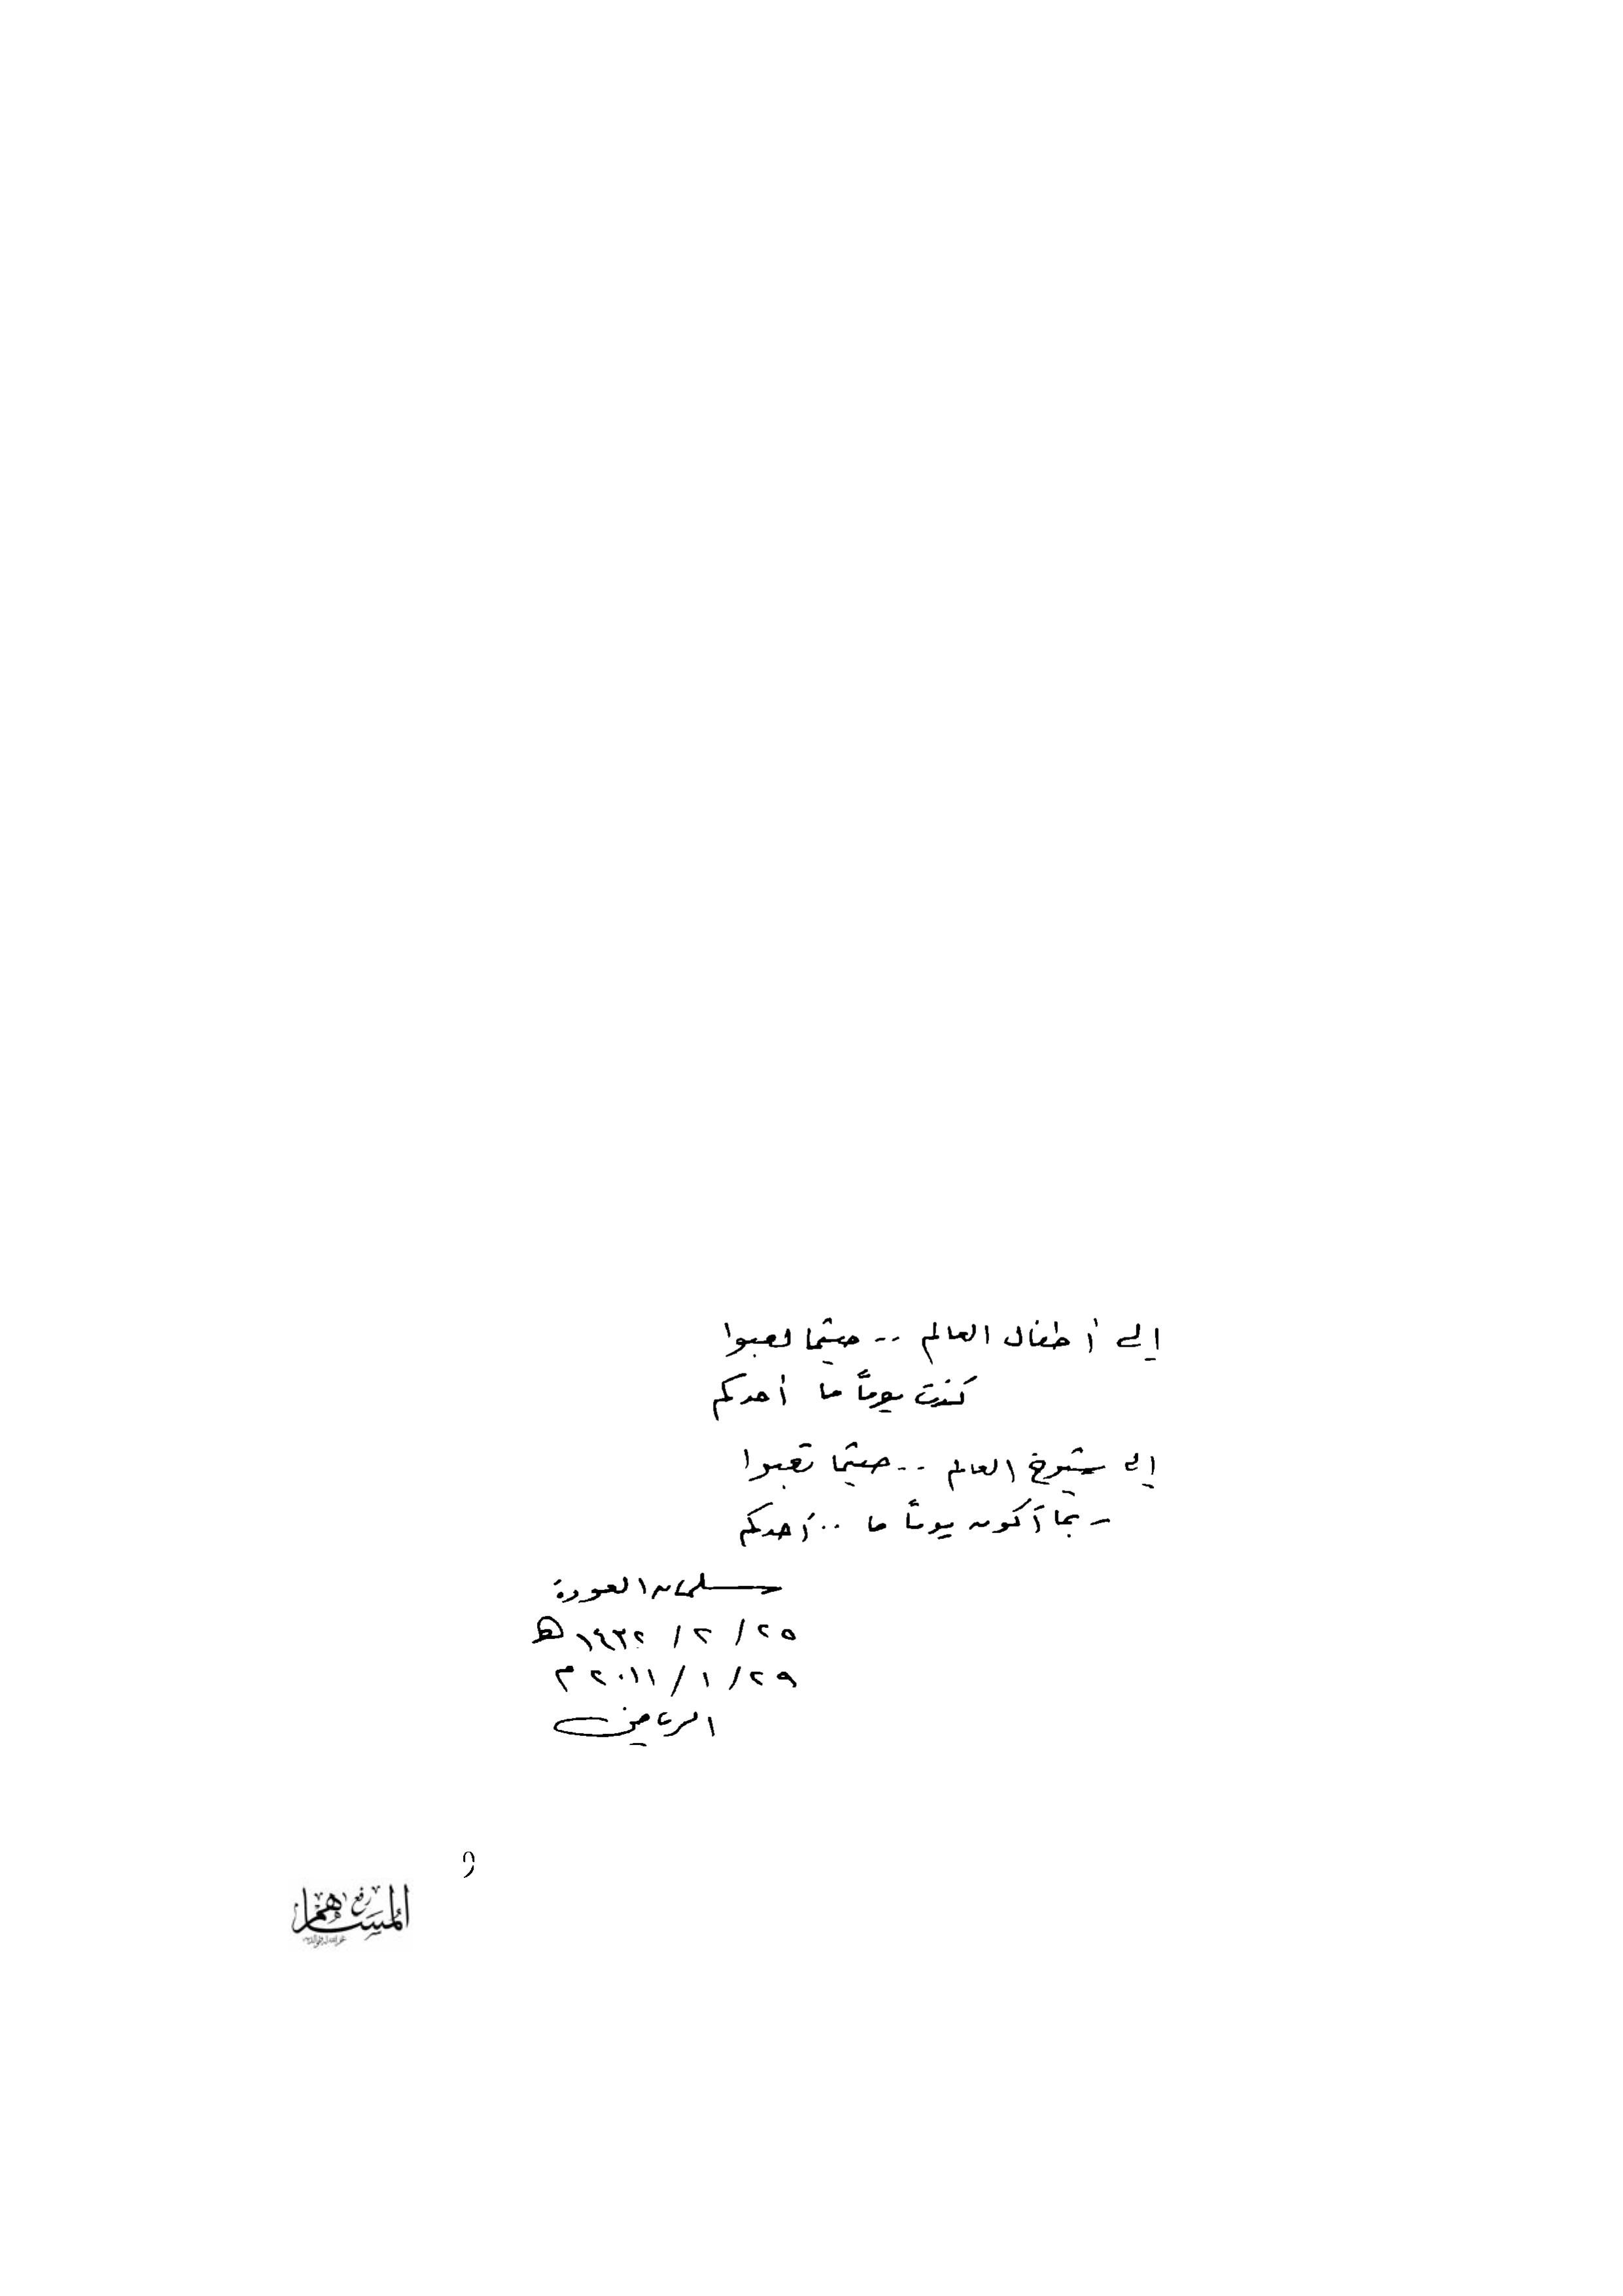 إلى أطفال العالم .. حيثما لعبوا
كنت يوماً ما أحدكم
إلى شيوخ العالم .. حيثما تعبوا
ربما أكون يوماً ما .. أحدكم
سلمان العودة
٢٥ / ٢ / ١٤٣٢ هـ
٢٩ / ١ / ٢٠١١ م
الرياض
٩
رفع
المساهم